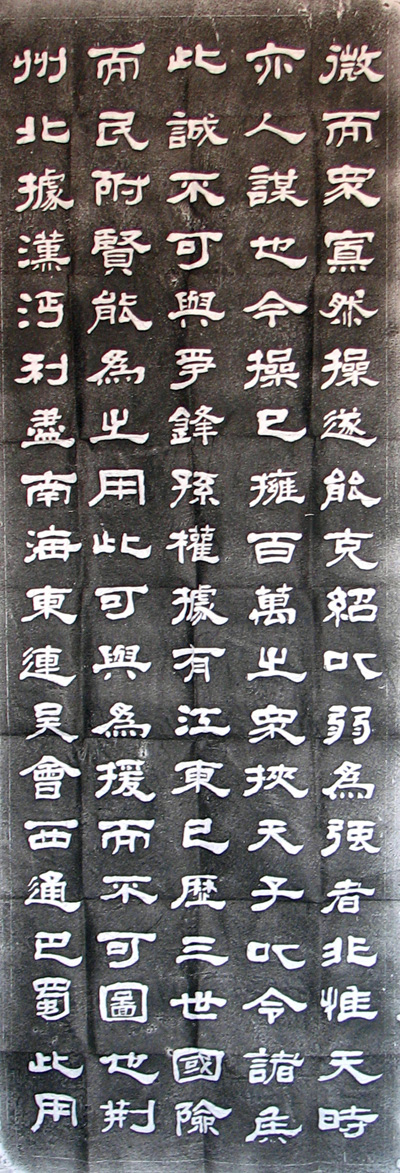 微而眾寡然操遂能克紹以弱為強者非惟天時
亦人謀也今操已擁百萬之眾挾天子以令諸侯
此誠不可與爭鋒孫權據有江東已歷三世國險
而民附賢能為之用此可與為援而不可圖也荊
州北據漢沔利盡南海東連吳會西通巴蜀此用